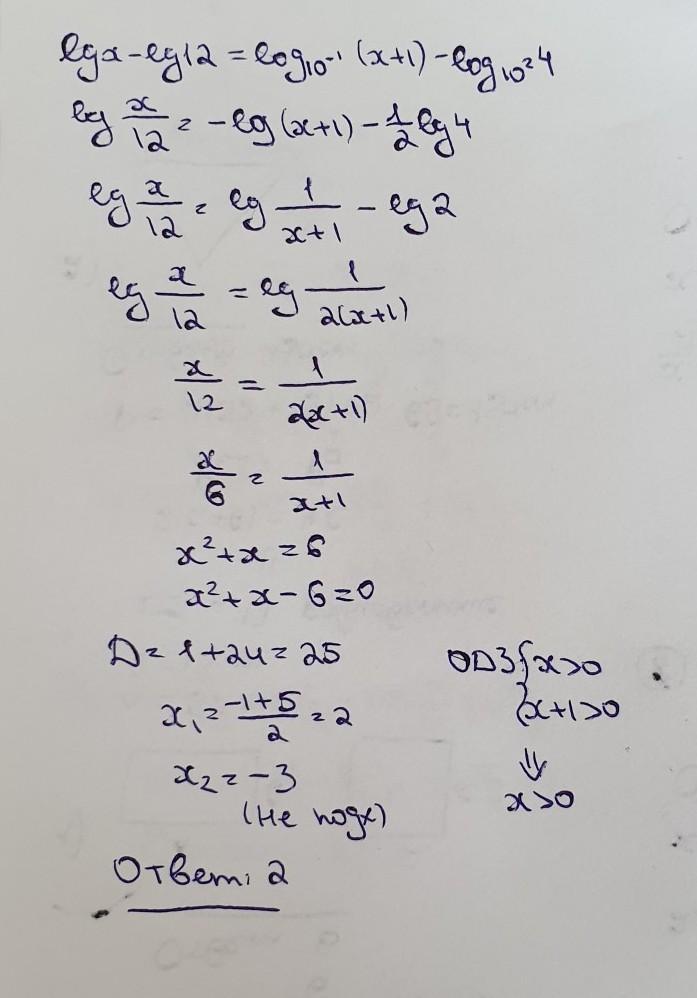 lgx-lg12 = log₁₀⁻¹ (x+1) - log₁₀² 4
lg x/12 = -lg(x+1) - 1/2 lg4
lg x/12 = lg 1/(x+1) - lg2
lg x/12 = lg 1/(2(x+1))
x/12 = 1/(2(x+1))
x/6 = 1/(x+1)
x²+x = 6
x²+x-6=0
D = 1+24 = 25
x₁ = (-1+5)/2 = 2
x₂ = -3
(не подх)
ОДЗ { x>0
{ x+1>0
⇓
x>0
Ответ: 2